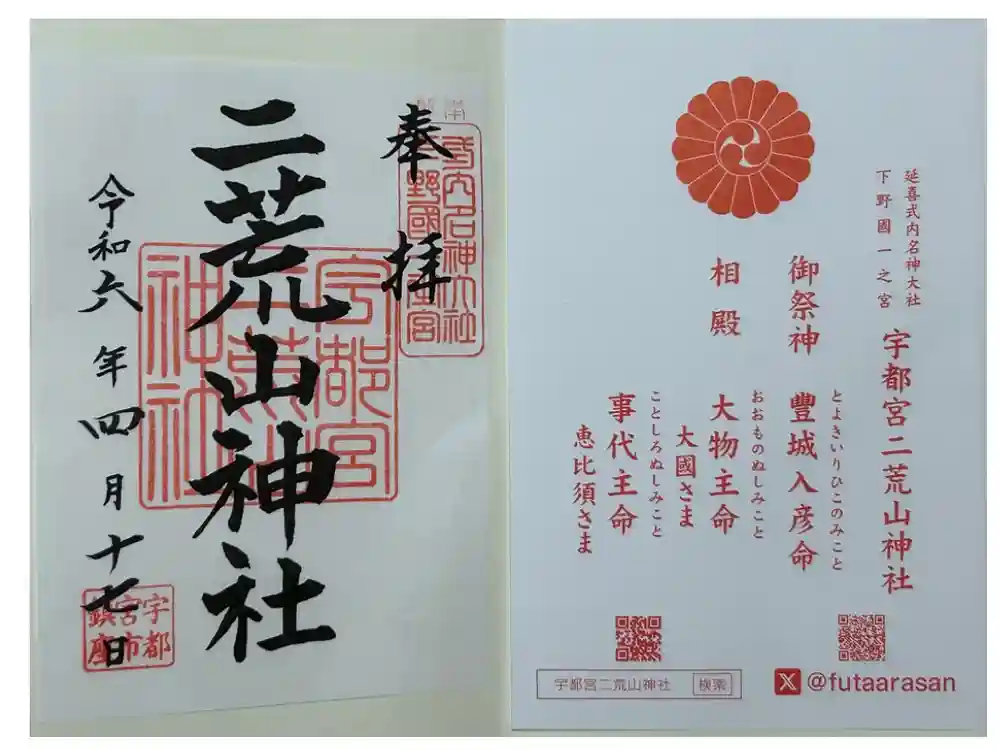 奉拝
二荒山神社
宇都宮二荒山神社
令和六年四月十七日
宇都宮市鎮座
延喜式内名神大社
下野國一之宮
宇都宮二荒山神社
御祭神
とよきいりひこのみこと
豐城入彦命
相殿
おおものぬしみこと
大物主命
大國さま
ことしろぬしみこと
事代主命
恵比須さま
宇都宮二荒山神社
検索
@futaarasan